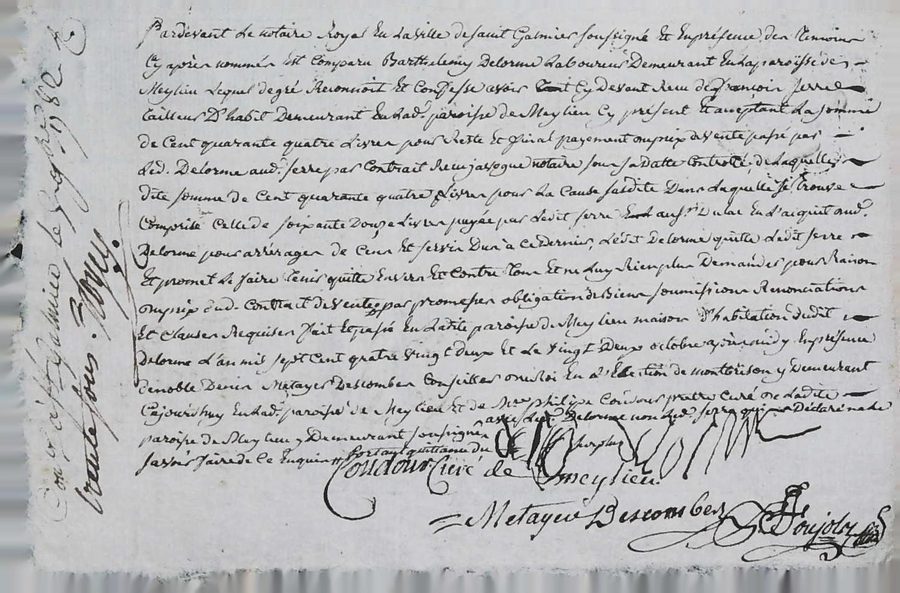 Pardevant Le notaire Royal En La ville de saint Galmier soussigné et En presence des temoins
Cy après nommés est Comparu Barthelemy Delorme Laboureur Demeurant En La paroisse de
Meylieu Lequel de gré Reconnoit et Confesse avoir Cy Devant Receu de françois Serre
tailleur D'habit Demeurant En Lad. paroisse de Meylieu Cy present et aceptant La somme
de Cent quarante quatre Livres pour Reste et final payement du prix de vente passé par
Led. Delorme aud. Serre par Contrait Receu notaire sous sa datte Controlé, de Laquelle
dite somme de Cent quarante quatre Livres pour La Cause susdite Dans Laquelle se trouve
Comprise Celle de soixante Douze Livres payée par Ledit Serre aud.
Delorme pour arrérages de Cens Et servis Dus a ce dernier, Ledit Delorme quitte Ledit Serre
Et promet Le faire tenir quitte Envers Et Contre tous Et ne Luy Rien plus Demander pour Raison
du prix dud. Contrait de vente, par promesses obligation de Biens soumissions Renonciations
Et Clauses Requises fait Et passé En Ladite paroisse de Meylieu maison D'habitation dudit
Delorme L'an mil sept Cent quatre vingt deux et Le vingt Deux octobre après midy En presence
de noble Denis Metayer Descombes Conseiller du Roi En L'Election de montbrison y Demeurant
Cejourd'huy En Lad. paroisse de Meylieu et de Mre Philipe Coudour pretre Curé de Ladite
paroisse de Meylieu y Demeurant soussignés avec Led. Delorme non Led. Serre qui a Déclaré ne Le
savoir faire de Ce Enquis
Delorme
Coudour Curé de meylieu
Metayer Descombes
Controlé à St Galmier le 1782